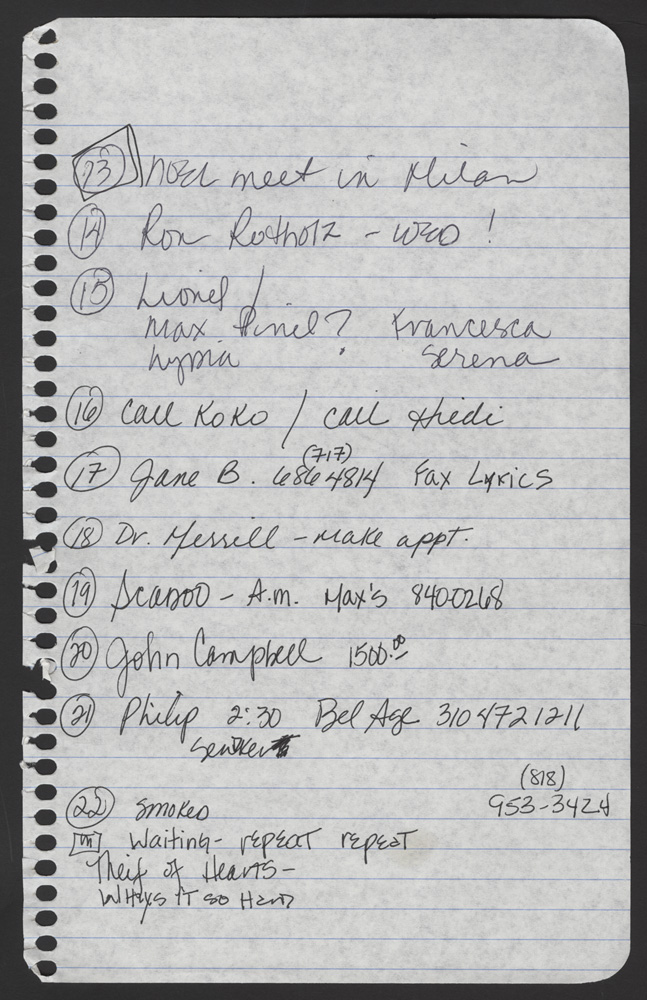 13 Noel meet in Milan
14 Ron Rotholz - WED!
15 Lionel /
Max Pinel? Francesca
Serena
16 Call Koko / call Hiedi
(717)
17 Jane B. 6864814 Fax Lyrics
18 Dr. Merrill - make appt.
19 - A.M. Max's 8400268
20 John Campbell 1500.00
21 Philip 2:30 Bel Age 310 4721211
(818)
22 Smoked 953-3424
Waiting - repeat repeat
Theif of Hearts -
Whys it so Hard